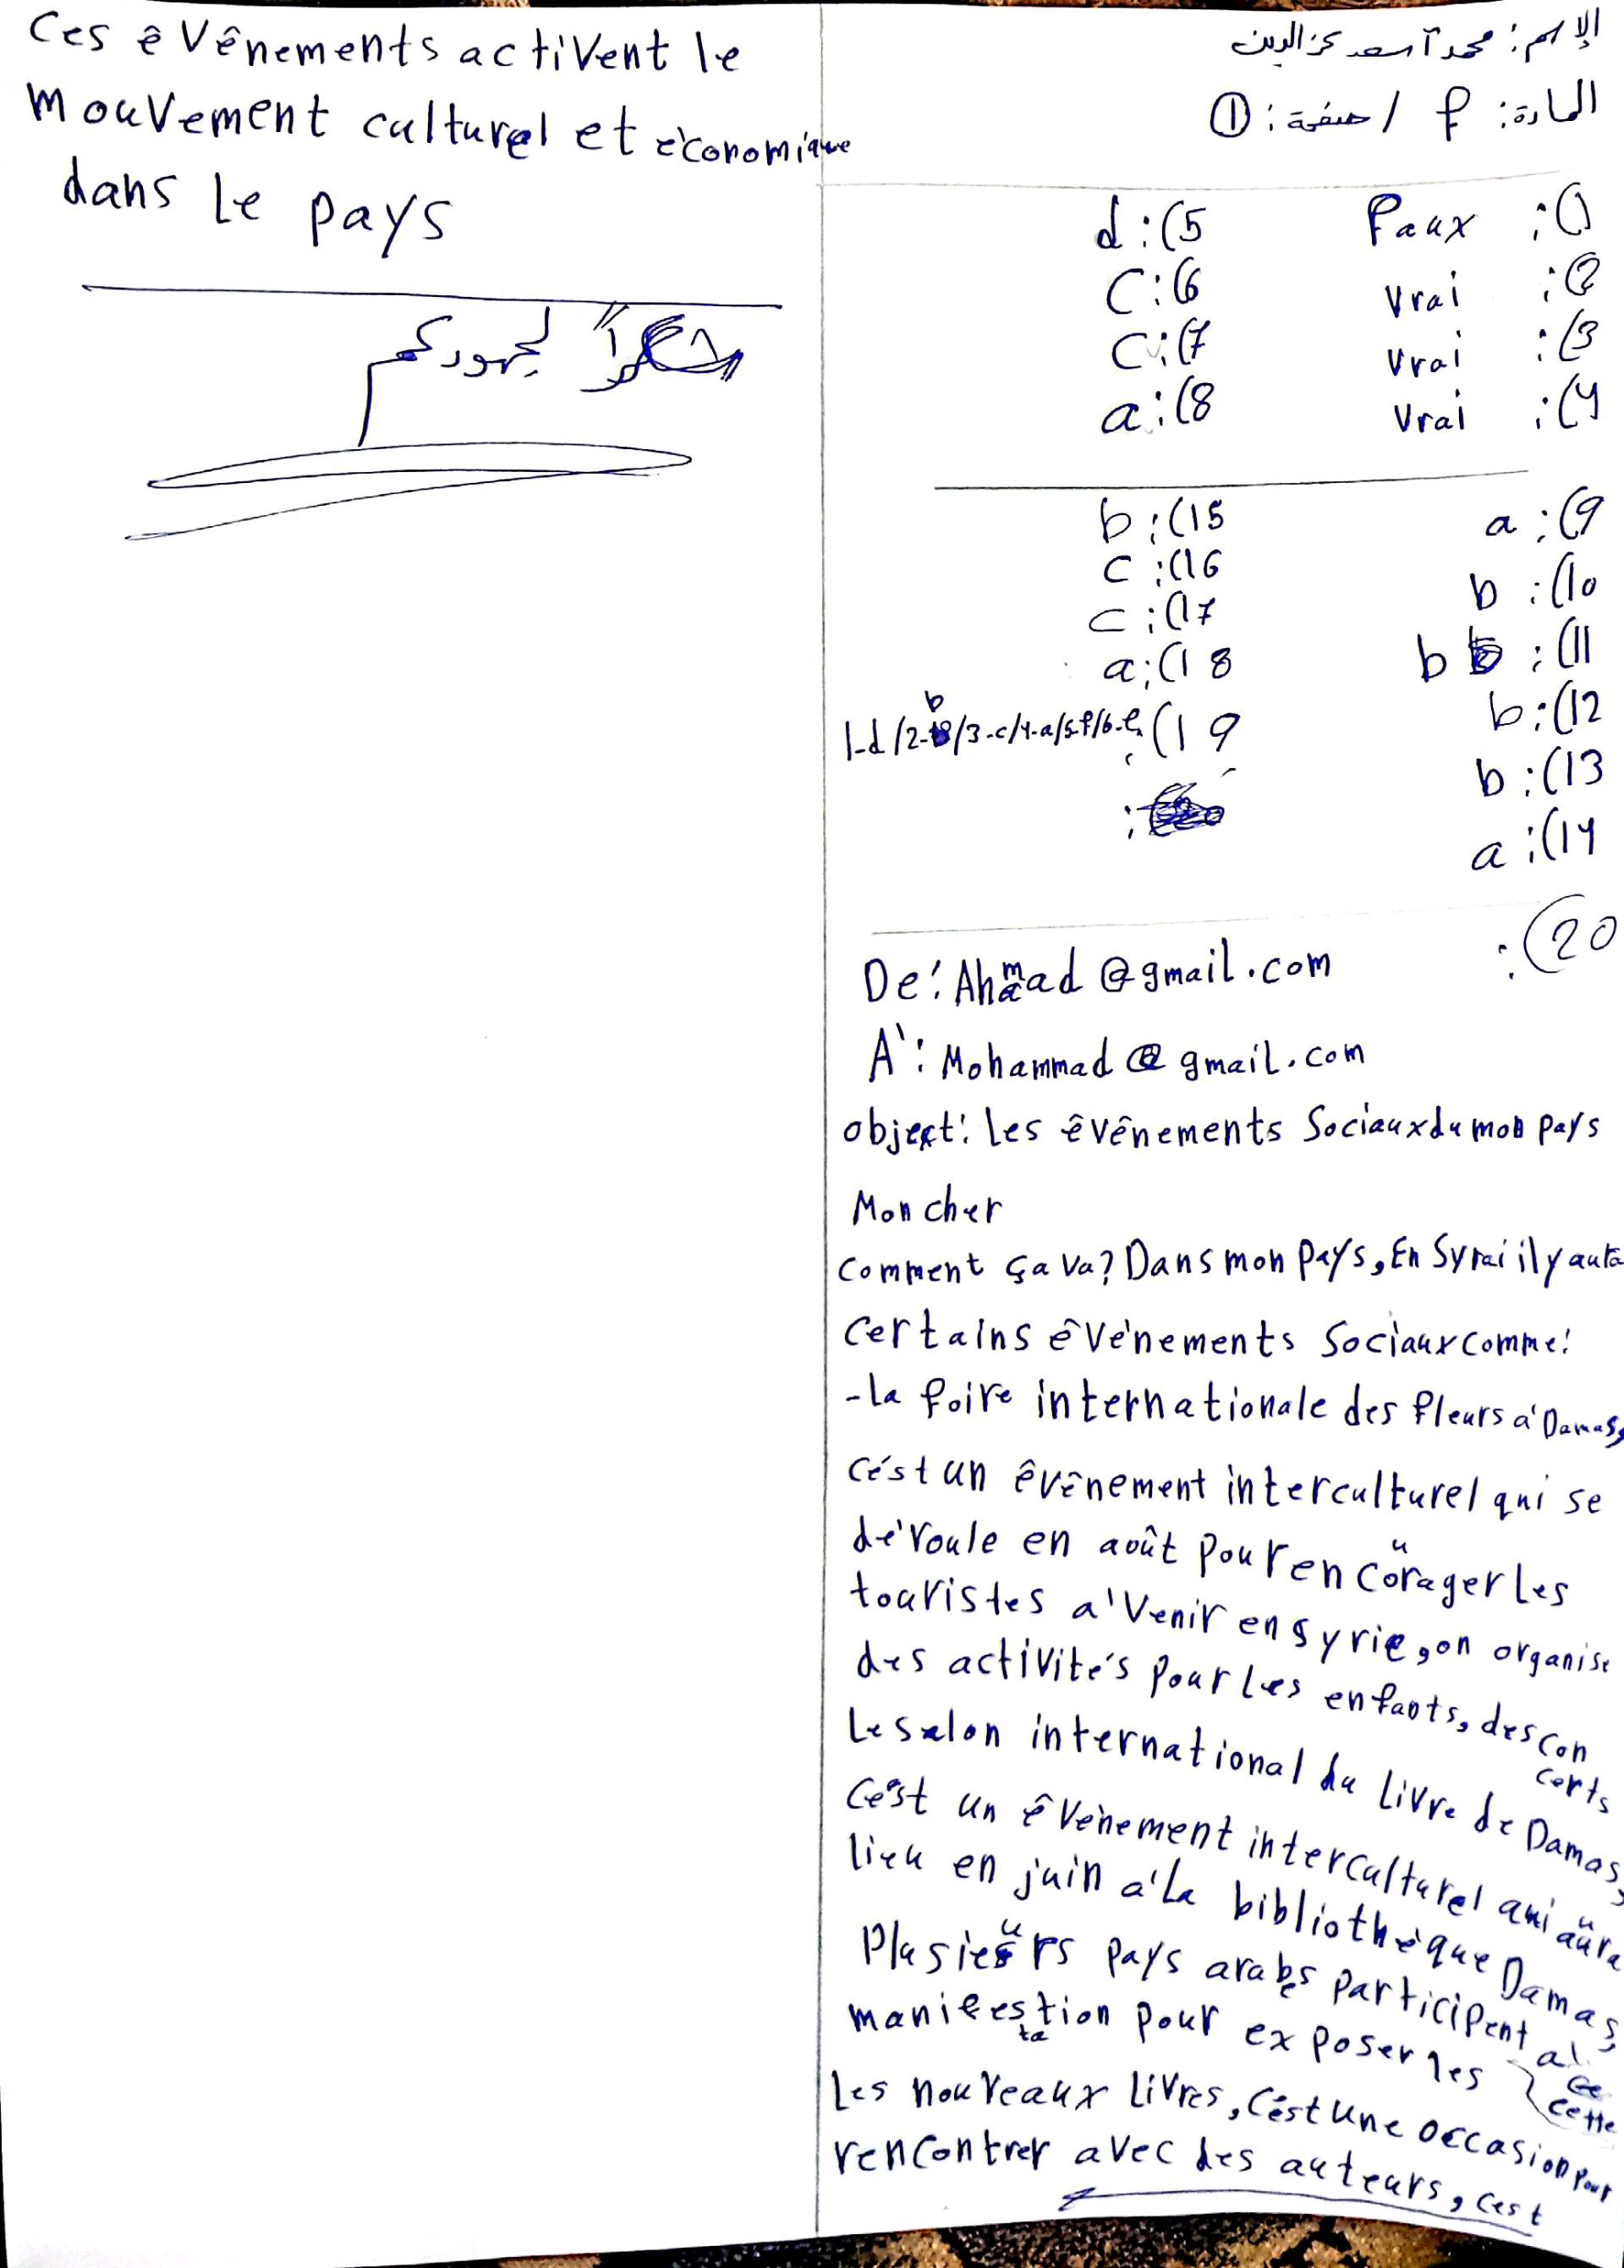 الإسم: محمد آسعد عز الدين
المادة: f / صفحة: ①
1): Faux
2): Vrai
3): Vrai
4): Vrai
5): d
6): C
7): C
8): a
9): a
10): b
11): b
12): b
13): b
14): a
15): b
16): c
17): c
18): a
19): 1-d/2-b/3-c/4-a/5-f/6-e
20):
De: Ahmad@gmail.com
A': Mohammad@gmail.com
object: Les êvênements Sociaux du mon pays
Mon cher
Comment ça va? Dans mon Pays, En Syrai il y aura
certains êvénements Sociaux comme:
-la foire internationale des fleurs a' Damas,
C'ést un êvênement interculturel qui se
déroule en août pour encourager les
touristes a' Venir en Syrie, on organise
des activités pour les enfants, des concerts
Le salon international du Livre de Damas,
C'est un êvénement interculturel qui aura
lieu en juin a' la bibliothéque Damas,
Plusieurs pays arabes participent a' cette
manifestation pour exposer les
Les nouveaux livres, C'ést une occasion pour
rencontrer avec des auteurs, cest
Ces êvênements activent le
mouvement culturel et économique
dans le pays
شكراً لجهودكم